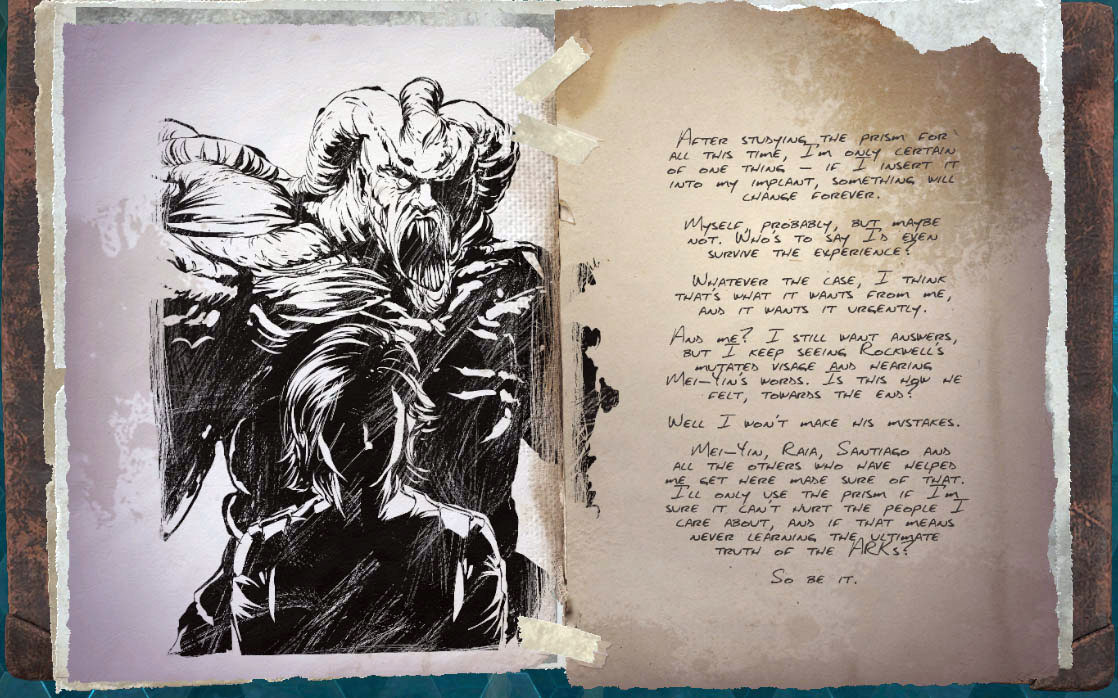 After studying the prism for
all this time, I'm only certain
of one thing – if I insert it
into my implant, something will
change forever.
Myself, probably, but maybe
not. Who's to say I'd even
survive the experience?
Whatever the case, I think
that's what it wants from me,
and it wants it urgently.
And me? I still want answers,
but I keep seeing Rockwell's
mutated visage and hearing
Mei-Yin's words. Is this how he
felt, towards the end?
Well I won't make his mistakes.
Mei-Yin, Raia, Santiago and
all the others who have helped
me get here made sure of that.
I'll only use the prism if I'm
sure it can't hurt the people I
care about, and if that means
never learning the ultimate
truth of the ARKs?
So be it.